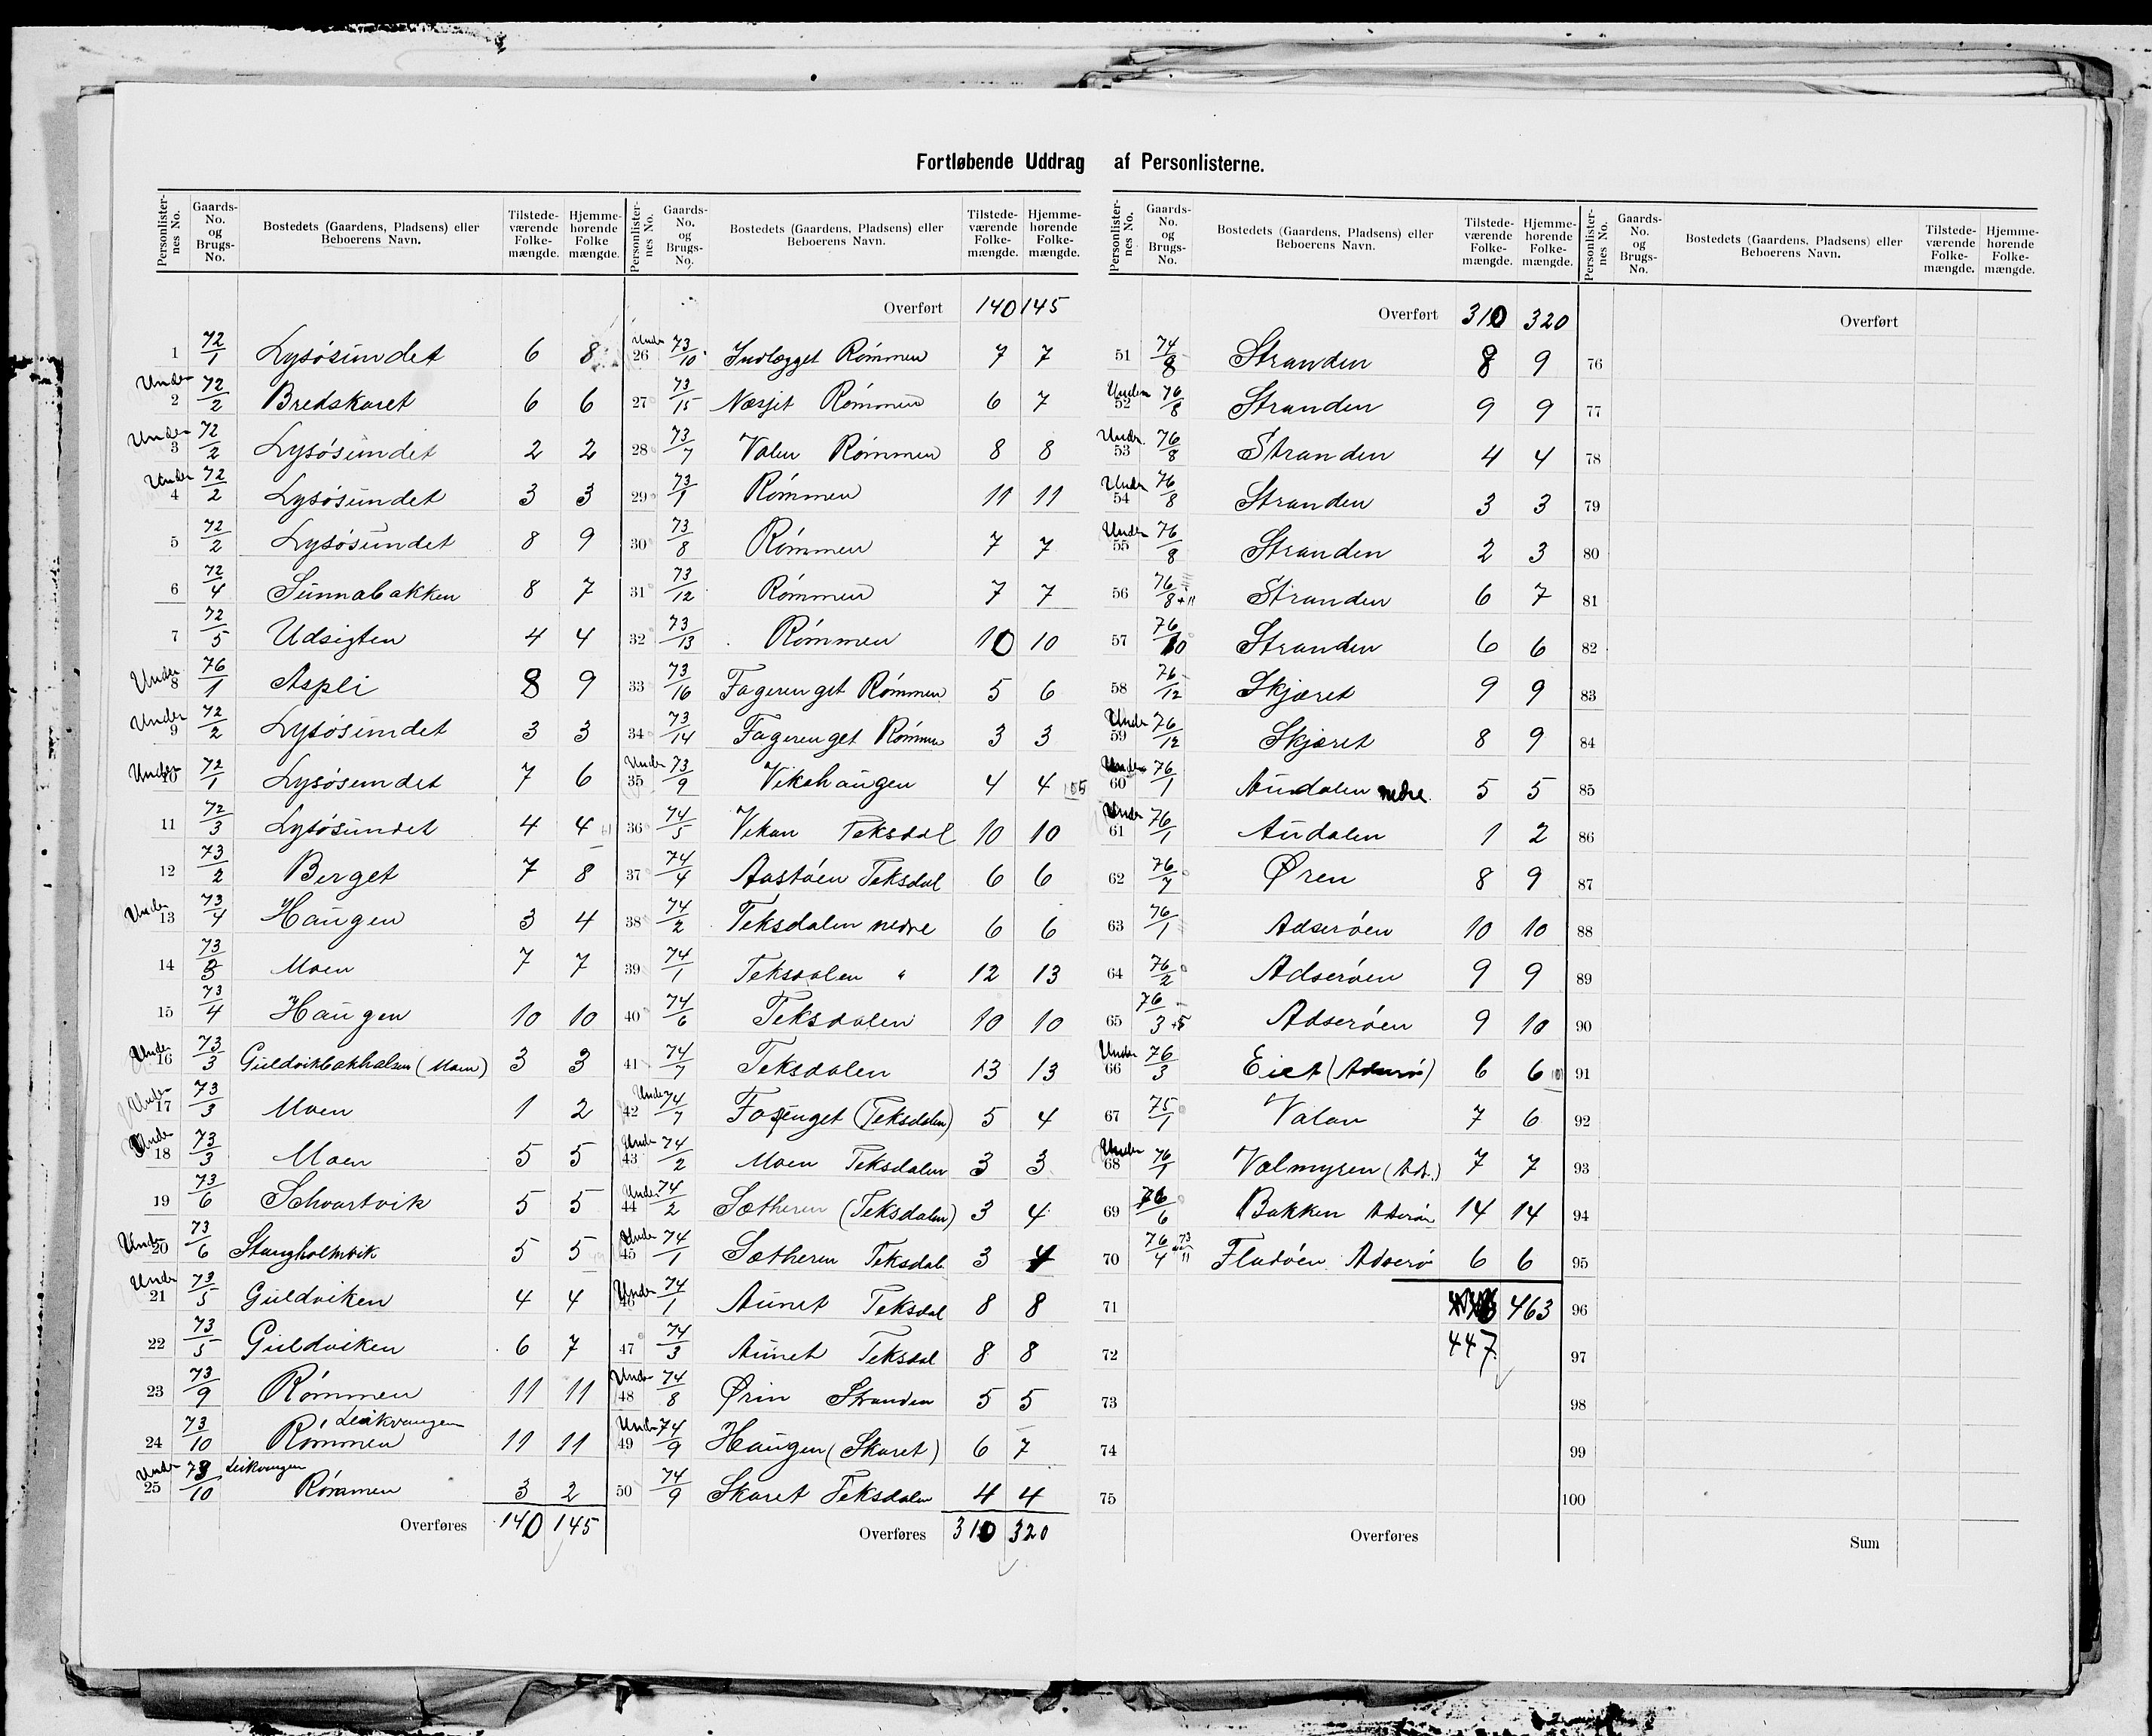 Fortløbende Uddrag af Personlisterne.
Personlisternes No. Gaards-No. og Brugs-No. Bostedets (Gaardens, Pladsens) eller Beboerens Navn. Tilstedeværende Folkemængde. Hjemmehørende Folkemængde.
1 72/1 Lysøsundet 6 8
Under 2 72/2 Bredskaret 6 6
Under 3 72/2 Lysøsundet 2 2
Under 4 72/2 Lysøsundet 3 3
5 72/2 Lysøsundet 8 9
6 72/4 Sunnabakken 8 7
7 72/5 Udsigten 4 4
Under 8 76/1 Aspli 8 9
Under 9 72/2 Lysøsundet 3 3
Under 10 72/1 Lysøsundet 7 6
11 72/3 Lysøsundet 4 4
12 73/2 Berget 7 8
Under 13 73/4 Haugen 3 4
14 73/3 Moen 7 7
15 73/4 Haugen 10 10
Under 16 73/3 Guldvikbakhalsen (Moen) 3 3
Under 17 73/3 Moen 1 2
Under 18 73/3 Moen 5 5
19 73/6 Schvartvik 5 5
Under 20 73/6 Stangholmvik 5 5
Under 21 73/5 Guldviken 4 4
22 73/5 Guldviken 6 7
23 73/9 Rømmen 11 11
24 73/10 Rømmen Leikvangen 11 11
Under 25 73/10 Leikvangen Rømmen 3 2
Overføres 140 145
Personlisternes No. Gaards-No. og Brugs-No. Bostedets (Gaardens, Pladsens) eller Beboerens Navn. Tilstedeværende Folkemængde. Hjemmehørende Folkemængde.
Overført 140 145
Under 26 73/10 Indlægget Rømmen 7 7
27 73/15 Næsjet Rømmen 6 7
28 73/7 Valen Rømmen 8 8
29 73/1 Rømmen 11 11
30 73/8 Rømmen 7 7
31 73/12 Rømmen 7 7
32 73/13 Rømmen 10 10
33 73/16 Fagerenget Rømmen 5 6
34 73/14 Fagerenget Rømmen 3 3
Under 35 73/9 Vikahaugen 4 4 105
36 74/5 Vikan Teksdal 10 10
37 74/4 Aastøen Teksdal 6 6
38 74/2 Teksdalen nedre 6 6
39 74/1 Teksdalen " 12 13
40 74/6 Teksdalen 10 10
41 74/7 Teksdalen 13 13
Under 42 74/7 (Teksdalen) 5 4
Under 43 74/2 Moen Teksdalen 3 3
Under 44 74/2 Sætheren (Teksdalen) 3 4
Under 45 74/1 Sætheren Teksdal 3 4
Under 46 74/1 Aunet Teksdal 8 8
47 74/3 Aunet Teksdal 8 8
Under 48 74/8 Ørin Stranden 5 5
Under 49 74/9 Haugen (Skaret) 6 7
50 74/9 Skaret Teksdalen 4 4
Overføres 310 320
Personlisternes No. Gaards-No. og Brugs-No. Bostedets (Gaardens, Pladsens) eller Beboerens Navn. Tilstedeværende Folkemængde. Hjemmehørende Folkemængde.
Overført 310 320
51 74/8 Stranden 8 9
Under 52 76/8 Stranden 9 9
Under 53 76/8 Stranden 4 4
Under 54 76/8 Stranden 3 3
Under 55 76/8 Stranden 2 3
56 76/8+11 Stranden 6 7
57 76/10 Stranden 6 6
58 76/12 Skjæret 9 9
Under 59 76/12 Skjæret 8 9
Under 60 76/1 Audalen nedre 5 5
Under 61 76/1 Audalen 1 2
62 76/7 Øren 8 9
63 76/1 Adserøen 10 10
64 76/2 Adserøen 9 9
65 76/3+5 Adserøen 9 10
Under 66 76/3 Eiet (Adserø) 6 6
67 75/1 Valan 7 6
Under 68 76/1 Valmyren (Ad.) 7 7
69 76/6 Bakken Adserøen 14 14
70 76/4 73/11 Fladøen Adserø 6 6
71 463
72 447
73
74
75
Overføres
Personlisternes No. Gaards-No. og Brugs-No. Bostedets (Gaardens, Pladsens) eller Beboerens Navn. Tilstedeværende Folkemængde. Hjemmehørende Folkemængde.
Overført
76
77
78
79
80
81
82
83
84
85
86
87
88
89
90
91
92
93
94
95
96
97
98
99
100
Sum